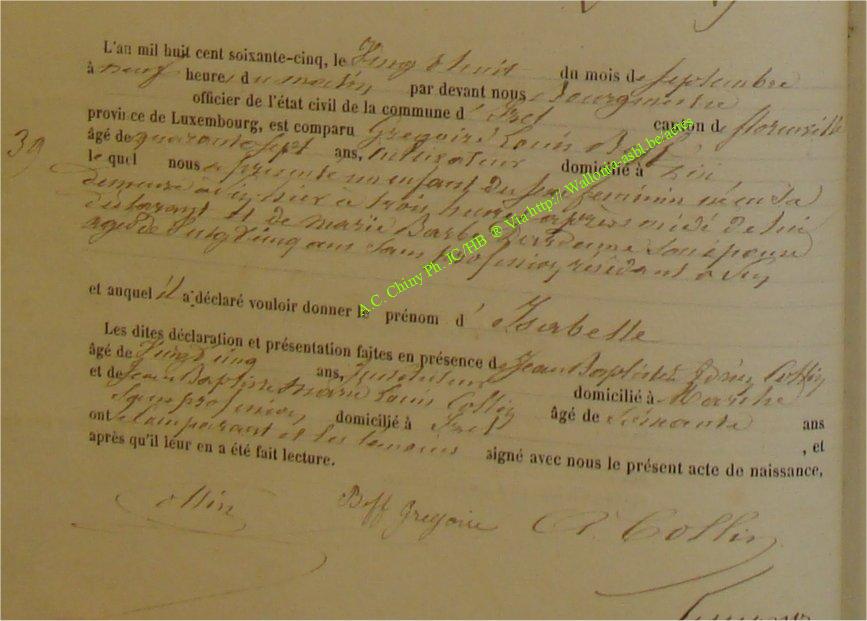 L'an mil huit cent soixante-cinq, le Vingt huit du mois de septembre
à neuf heures du matin par devant nous Bourgmestre
officier de l'état civil de la commune d' Izel canton de florenville
province de Luxembourg, est comparu Gregoire Louis
39
âgé de quarante sept ans, domicilié à
le quel nous a présenté un enfant du sexe feminin né en sa
demeure à trois heures après midi de lui
declarant et de marie Barbe son épouse
agée de ans sans profession résidant à
et auquel il a déclaré vouloir donner le prénom d' Isabelle
Les dites déclaration et présentation faites en présence de Jean Baptiste Collin
âgé de Vingt cinq ans, domicilié à
et de Jean Baptiste marie Louis Collin âgé de soixante ans
Sans profession domicilié à Izel , et
ont comparant et les temoins signé avec nous le présent acte de naissance,
après qu'il leur en a été fait lecture.
Collin Boff Gregoire Collin
A.C. Chiny Ph. JC/HB ® Via http://Wallonia-asbl.be/actes